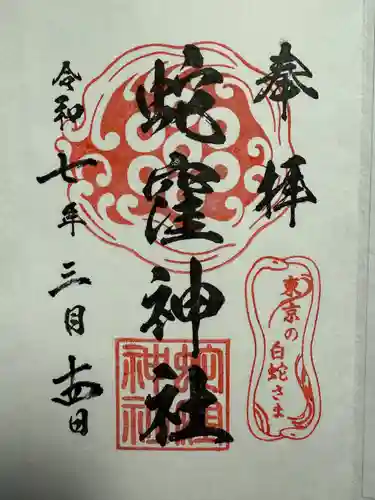 奉拝
蛇窪神社
令和七年三月十四日
東京の
白蛇さま